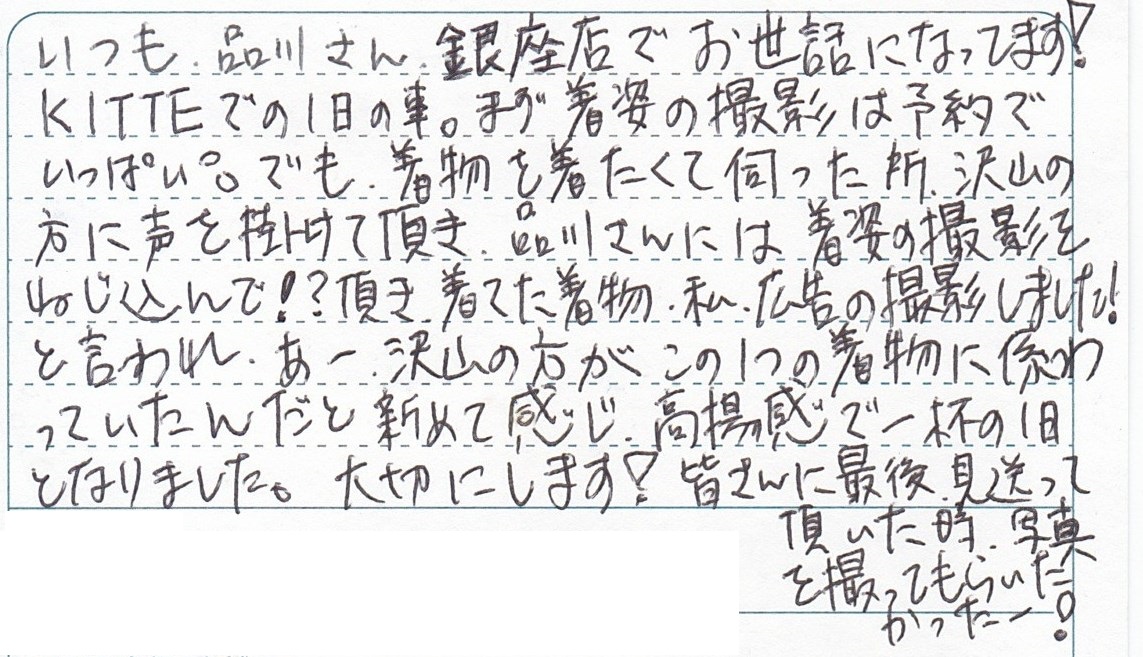 いつも、品川さん、銀座店でお世話になってます!
KITTEでの1日の事。まず着姿の撮影は予約で
いっぱい。でも、着物を着たくて伺った所、沢山の
方に声を掛けて頂き、品川さんには着姿の撮影を
ねじ込んで!?頂き、着てた着物、私、広告の撮影しました!
と言われ、あー、沢山の方がこの1つの着物に係わ
っていたんだと新めて感じ、高揚感で一杯の1日
となりました。大切にします!皆さんに最後、見送って
頂いた時、写真
を撮ってもらいた
かったー!